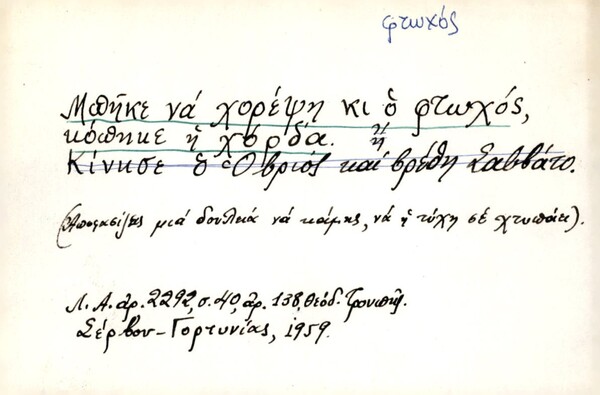 φτωχός
Μπῆκε νά χορέψη κι ὁ φτωχός,
κόπηκε ἡ χορδά. ἤ
Κίνησε ὁ Ὁβριός καί βρέθη Σαββάτο.
(Ἀποφασίζεις μιά δουλειά νά κάμης, νά ἡ τύχη σέ χτυπάει).
Λ. Α. ἀρ. 2292, σ. 40, ἀρ. 138, Θεόδ.
Σέρβου - Γορτυνίας, 1959.